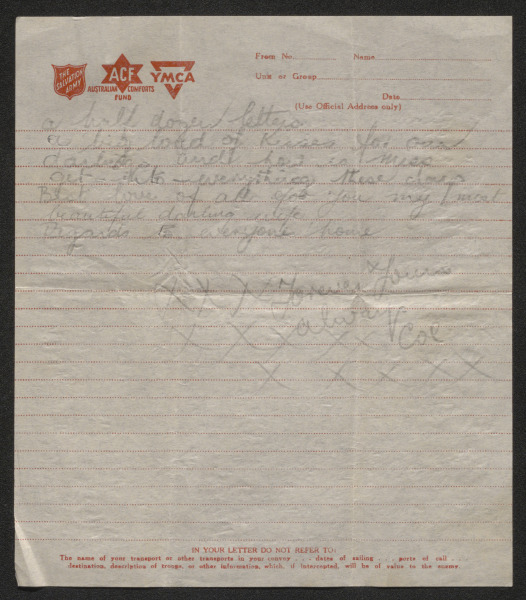 THE SALVATION ARMY
ACF
AUSTRALIAN COMFORTS FUND
YMCA
From No. Name
Unit or Group
Date
(Use Official Address only)
a half dozen letters
a big load of kisses for our
darling and how is Miss
get into everything these days
Best love of all for you my most
beautiful darling wife
Regards to everyone home
X X X Forever Yours
X X X X always Col
X X X X X
IN YOUR LETTER DO NOT REFER TO:
The name of your transport or other transports in your convoy . . . dates of sailing . . . ports of call . .
destination, description of troops, or other information, which, if intercepted, will be of value to the enemy